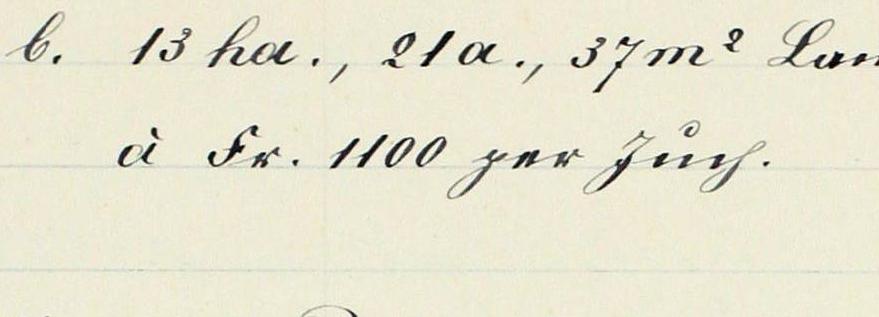 b. 13 ha., 21 a., 37 m² Lan
à Fr. 1100 per Juch.